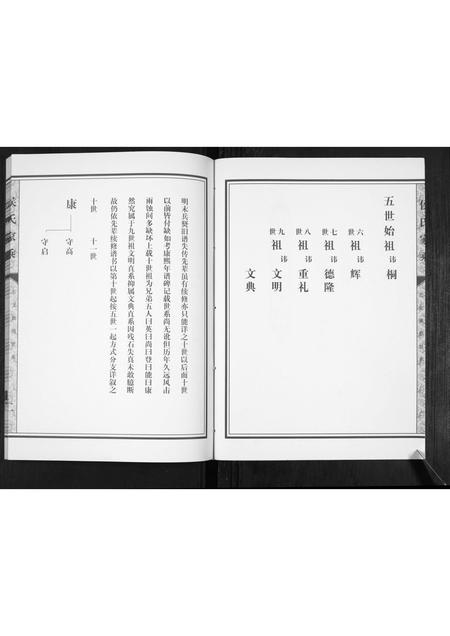 五世始祖讳桐
六世祖讳辉
七世祖讳德隆
八世祖讳重礼
九世祖讳文明
文典
明末兵燹旧谱失传先辈虽有续修亦只能详之十世以后而十世
以前皆付缺如考康熙年谱碑记载世系尚无讹但历年久远风击
雨蚀间多缺坏上载十世祖为兄弟五人曰英曰尚曰登曰能曰康
然究属于九世祖文明直系抑属文典直系因残石失真未敢臆断
故仍依先辈续修谱书以第十世起按五世一起方式分支详叙之
十世 十一世
康 守高
守启